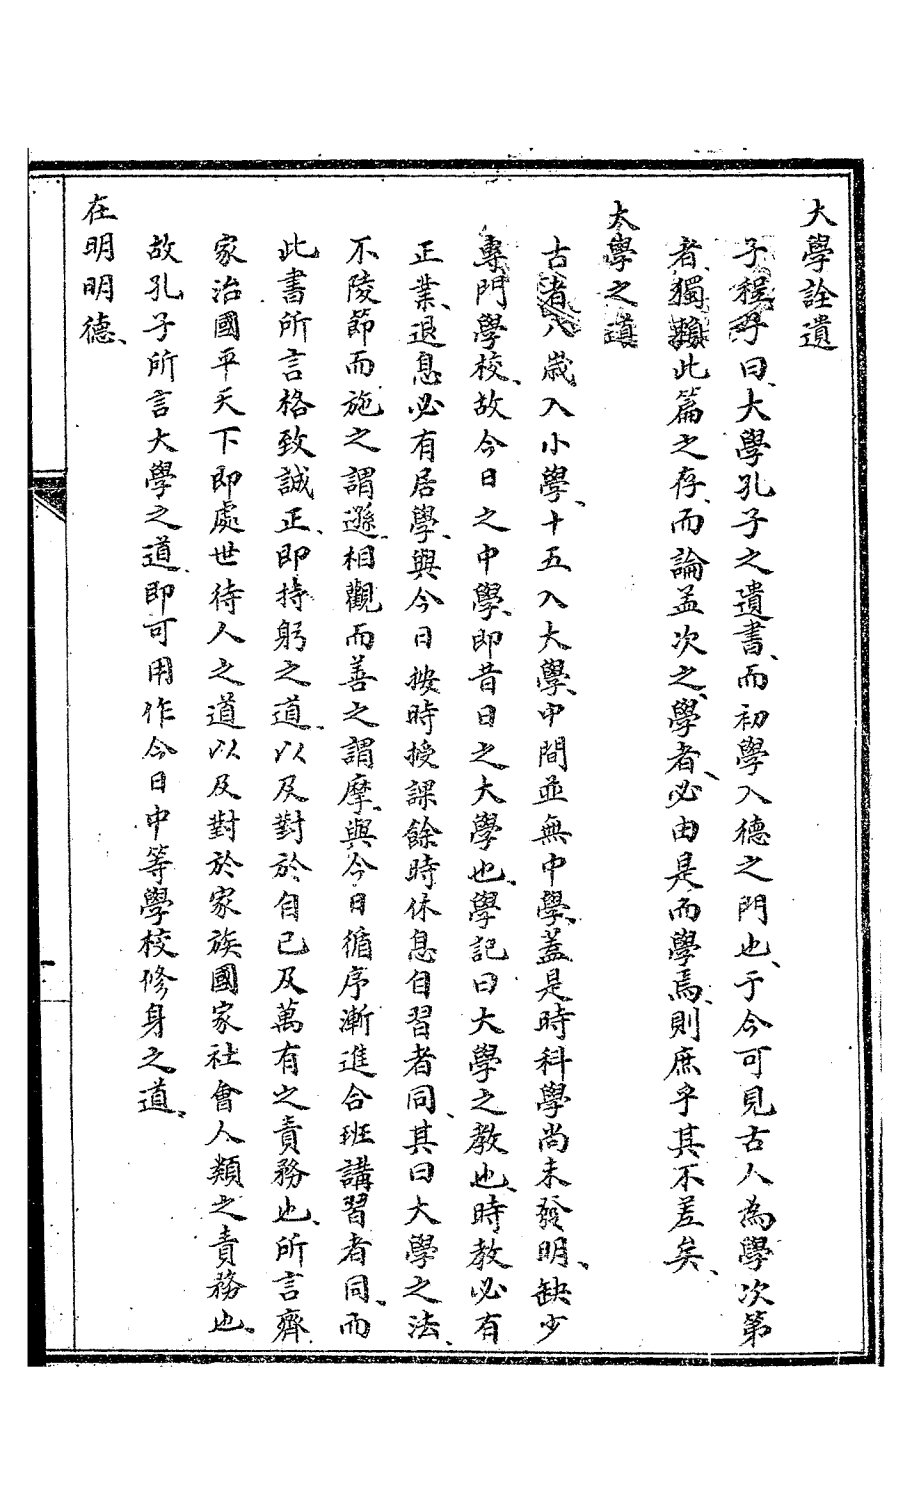 大學詮遺
子程子曰、大學孔子之遺書、而初學入德之門也、于今可見古人為學次第
者、獨賴此篇之存、而論孟次之、學者、必由是而學焉、則庶乎其不差矣、
大學之道
古者八歲、入小學、十五入大學、中間並無中學、蓋是時科學尚未發明、缺少
專門學校、故今日之中學、即昔日之大學也、學記曰大學之教也、時教必有
正業、退息必有居學、與今日按時授課餘時休息自習者同、其曰大學之法、
不陵節而施之謂遜、相觀而善之謂摩、與今日循序漸進合班講習者同、而
此書所言格致誠正、即持躬之道、以及對於自己及萬有之責務也、所言齊
家治國平天下即處世待人之道以及對於家族國家社會人類之責務也、
故孔子所言大學之道、即可用作今日中等學校修身之道、
在明明德、